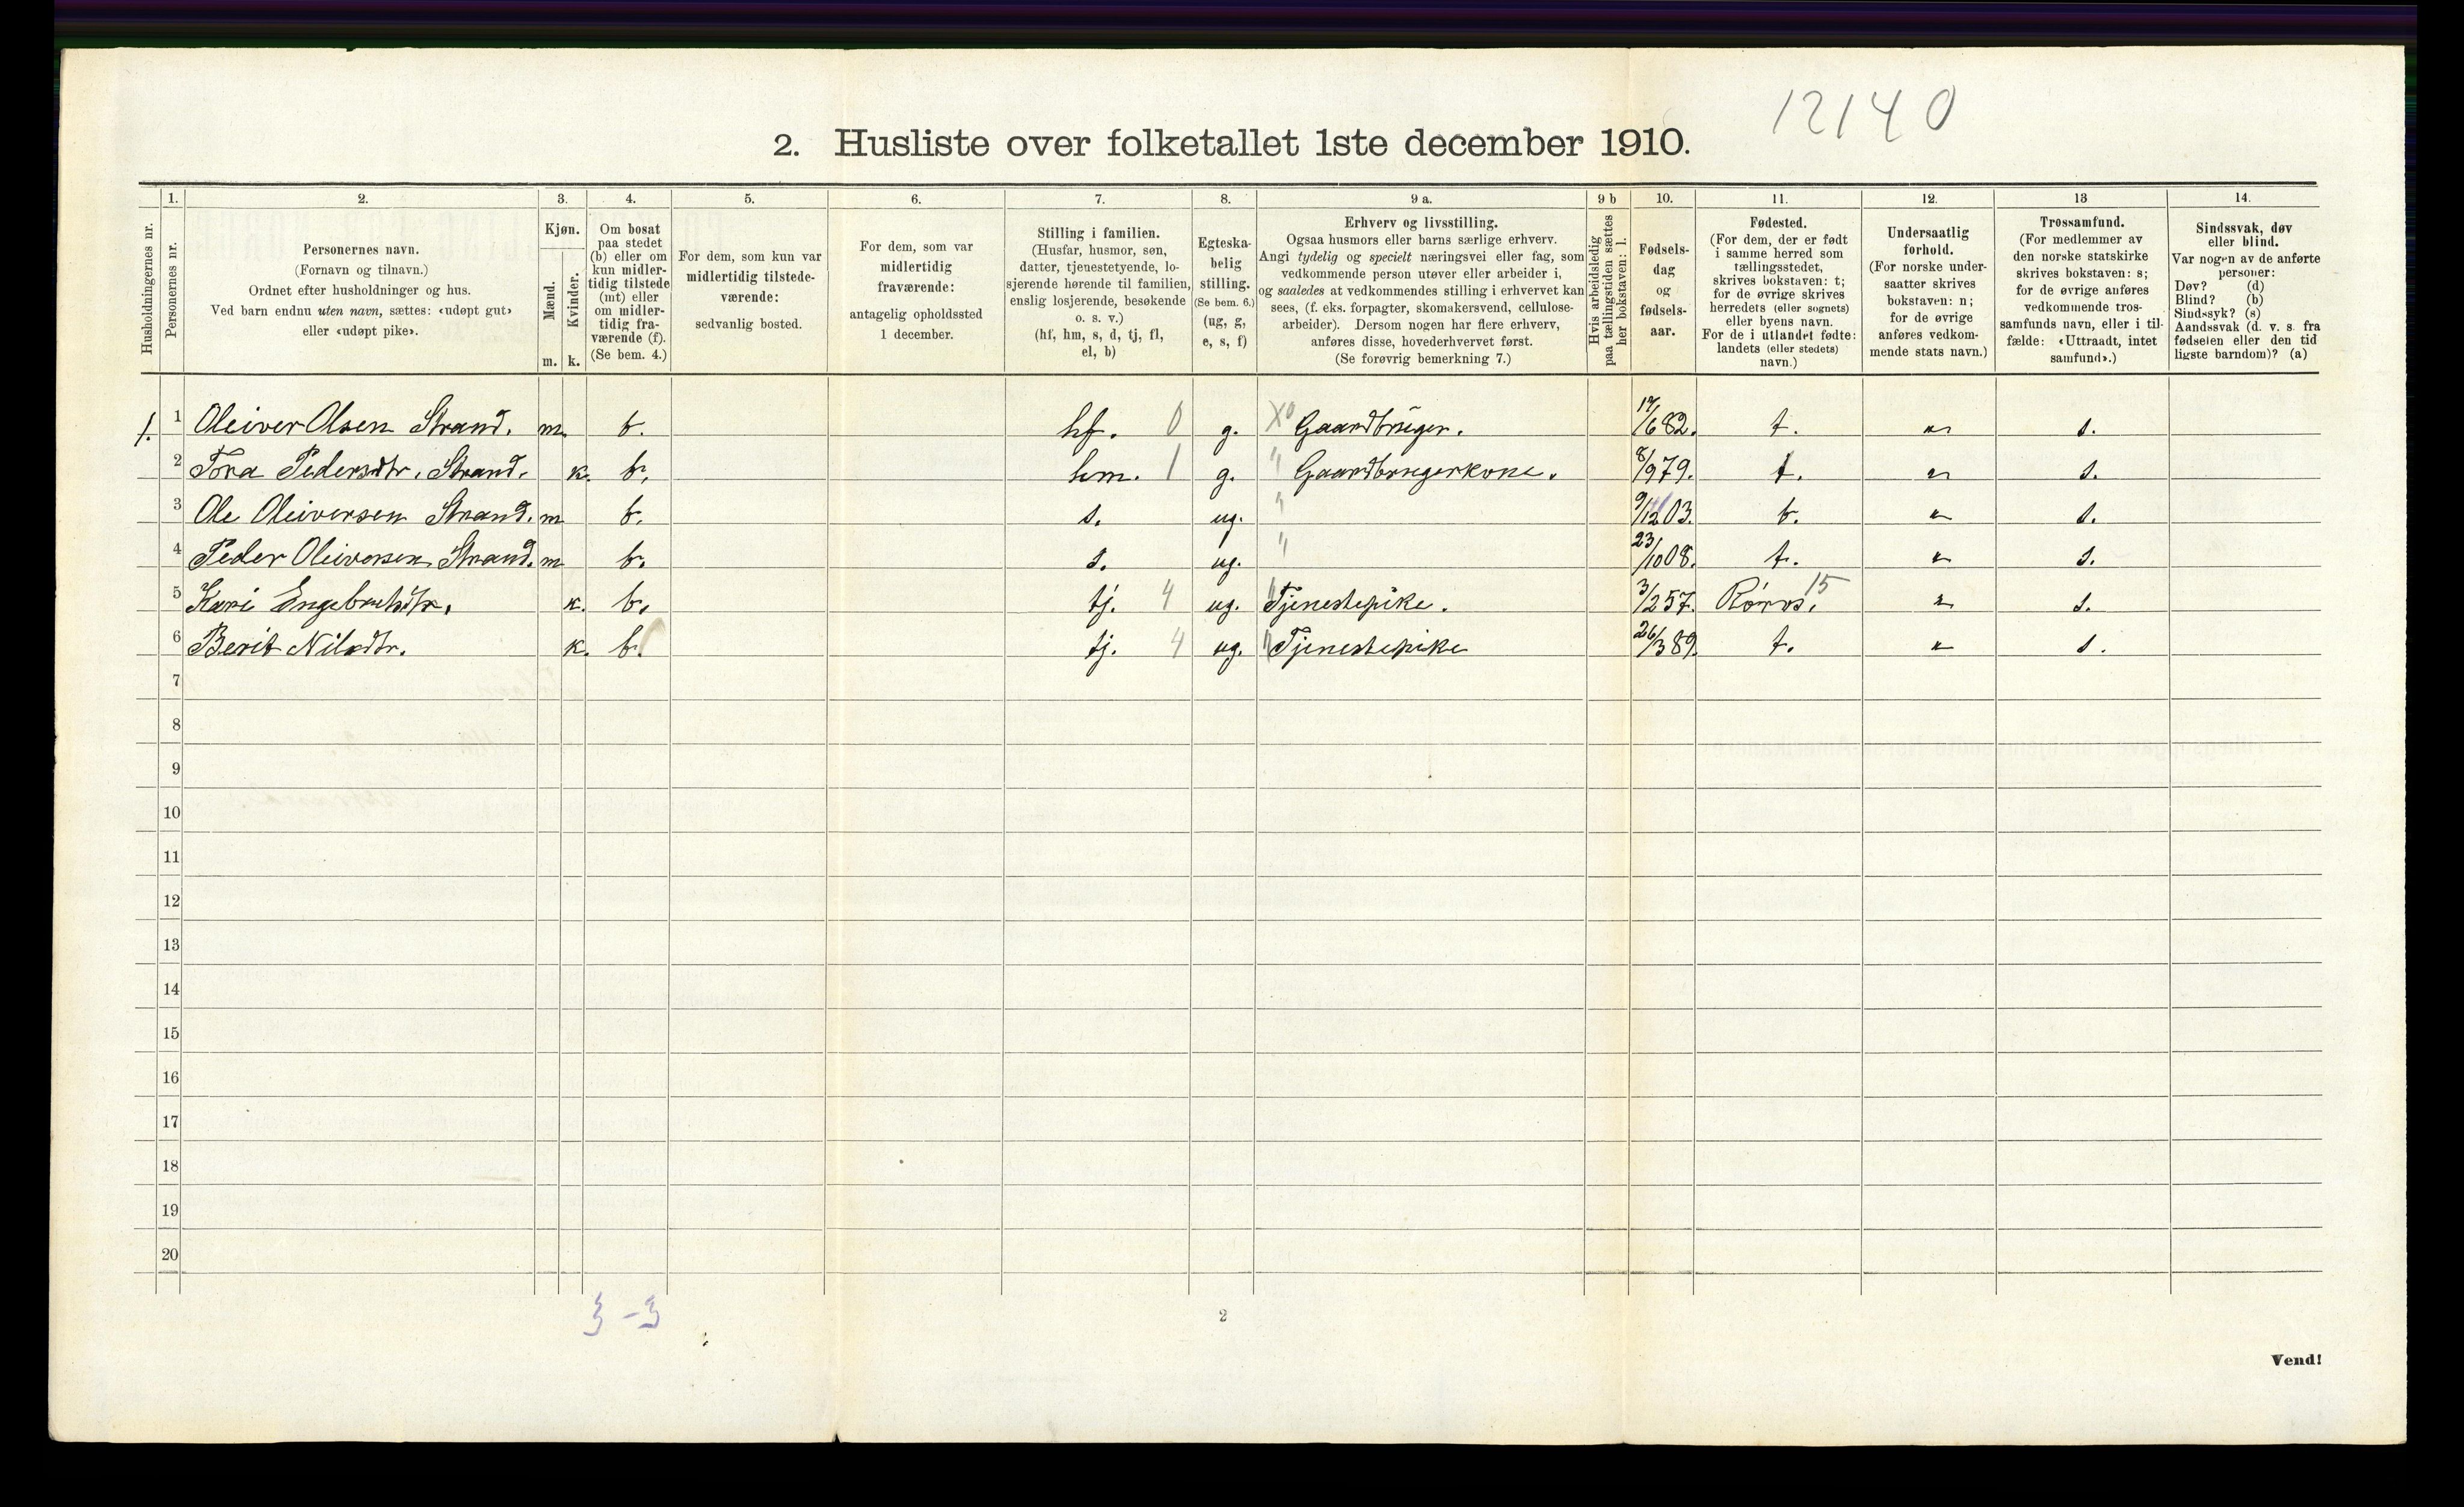 12140
2. Husliste over folketallet 1ste december 1910.
Husholdningernes nr.
1.
Personernes nr.
2.
Personernes navn.
(Fornavn og tilnavn.)
Ordnet efter husholdninger og hus.
Ved barn endnu uten navn, sættes: «udøpt gut»
eller «udøpt pike».
3.
Kjøn.
Mænd.
Kvinder.
m. k.
4.
Om bosat
paa stedet
(b) eller om
kun midler-
tidig tilstede
(mt) eller
om midler-
tidig fra-
værende (f).
(Se bem. 4.)
5.
For dem, som kun var
midlertidig tilstede-
værende:
sedvanlig bosted.
6.
For dem, som var
midlertidig
fraværende:
antagelig opholdssted
1 december.
7.
Stilling i familien.
(Husfar, husmor, søn,
datter, tjenestetyende, lo-
sjerende hørende til familien,
enslig losjerende, besøkende
o. s. v.)
(hf, hm, s, d, tj, fl,
el, b)
8.
Egteska-
belig
stilling.
(Se bem. 6.)
(ug, g,
e, s, f)
9 a.
Erhverv og livsstilling.
Ogsaa husmors eller barns særlige erhverv.
Angi tydelig og specielt næringsvei eller fag, som
vedkommende person utøver eller arbeider i,
og saaledes at vedkommendes stilling i erhvervet kan
sees, (f. eks. forpagter, skomakersvend, cellulose-
arbeider). Dersom nogen har flere erhverv,
anføres disse, hovederhvervet først.
(Se forøvrig bemerkning 7.)
9 b
Hvis arbeidsledig
paa tællingstiden sættes
her bokstaven: l.
10.
Fødsels-
dag
og
fødsels-
aar.
11.
Fødested.
(For dem, der er født
i samme herred som
tællingsstedet,
skrives bokstaven: t;
for de øvrige skrives
herredets (eller sognets)
eller byens navn.
For de i utlandet fødte:
landets (eller stedets)
navn.)
12.
Undersaatlig
forhold.
(For norske under-
saatter skrives
bokstaven: n;
for de øvrige
anføres vedkom-
mende stats navn.)
13
Trossamfund.
(For medlemmer av
den norske statskirke
skrives bokstaven: s;
for de øvrige anføres
vedkommende tros-
samfunds navn, eller i til-
fælde: «Uttraadt, intet
samfund».)
14.
Sindssvak, døv
eller blind.
Var nogen av de anførte
personer:
Døv? (d)
Blind? (b)
Sindssyk? (s)
Aandssvak (d. v. s. fra
fødselen eller den tid
ligste barndom)? (a)
1. 1 Oleiver Olsen Strand. m. b. hf. 0 g. X0 Gaardbruger. 17/6 82. t. n s.
2 Tora Pedersdtr. Strand. k. b. hm. 1 g. " Gaardbrugerkone. 8/9 79. t. n s.
3 Ole Oleiversen Strand. m b. s. ug. " 9/12 03. t. n s.
4 Peder Oleiversen Strand. m b. s. ug. " 23/10 08. t. n s.
5 Kari Engebretsdtr. k. b. tj. 4 ug. " Tjenestepike. 3/2 57. Røros. 15 n s.
6 Berit Nilsdtr. k. b. tj. 4 ug. " Tjenestepike 26/3 89. t. n s.
7
8
9
10
11
12
13
14
15
16
17
18
19
20
3 - 3
2
Vend!